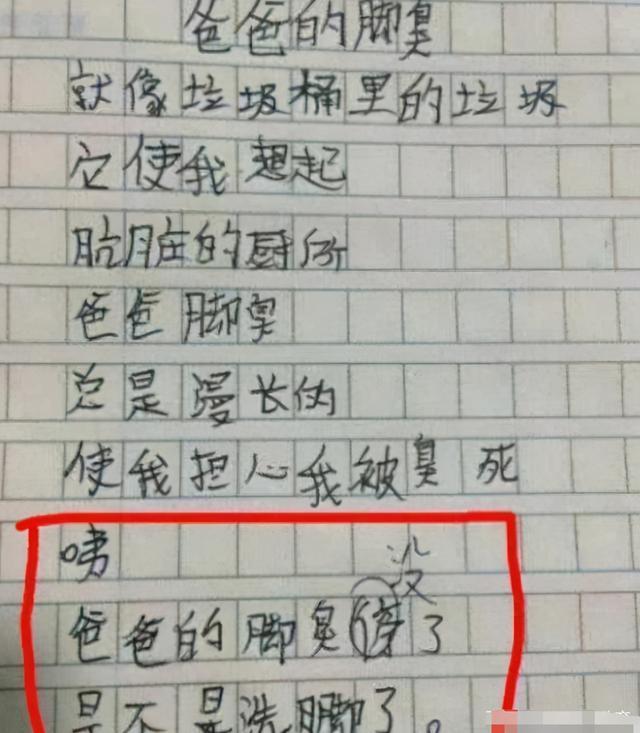 爸爸的脚臭
就像垃圾桶里的垃圾
它使我想起
肮脏的厕所
爸爸脚臭
总是漫长的
使我担心我被臭死
咦
没
爸爸的脚臭了
是不是洗脚了。